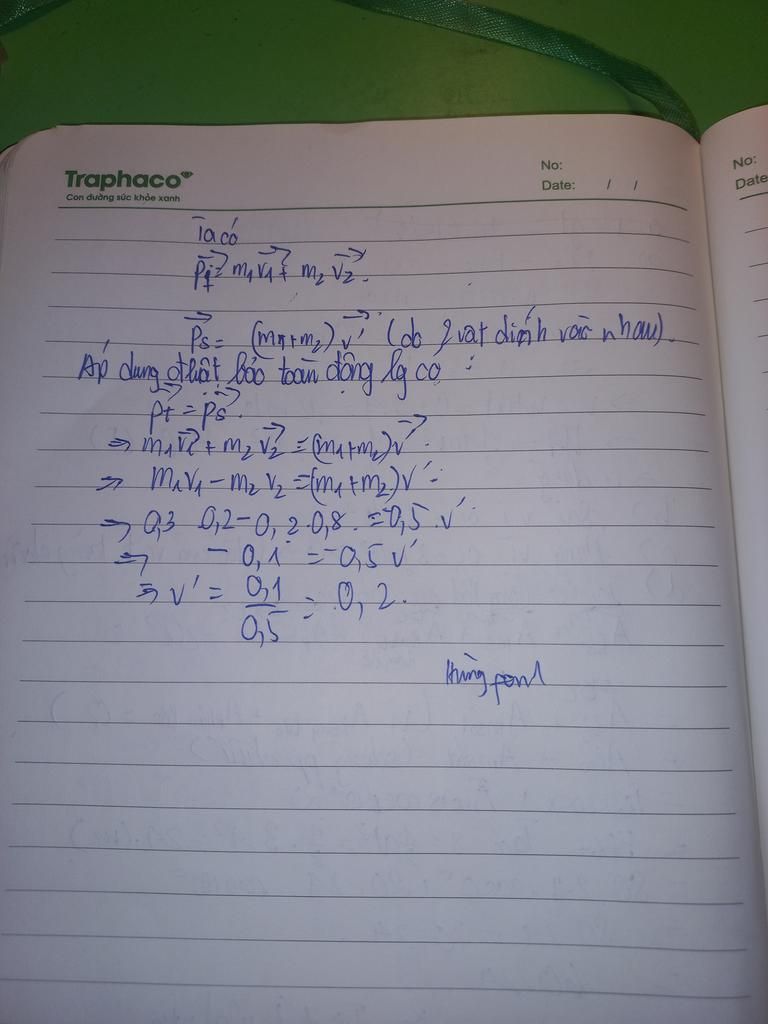 Traphaco
Con đường sức khỏe xanh
No:
Date: / /
No:
Date
Ta có
p⃗t = m1v⃗1 + m2v⃗2.
p⃗s = (m1+m2)v⃗' (do 2 vật dính vào nhau).
Áp dụng đluật bảo toàn động lg có :
p⃗t = p⃗s.
⇒ m1v⃗1 + m2v⃗2 = (m1+m2)v⃗'.
⇒ m1v1 - m2v2 = (m1+m2)v'
⇒ 0,3 0,2 - 0,2.0,8. = -0,5.v'
⇒ - 0,1 = -0,5v'
⇒ v' = 0,1/0,5 = 0,2.
Hùng